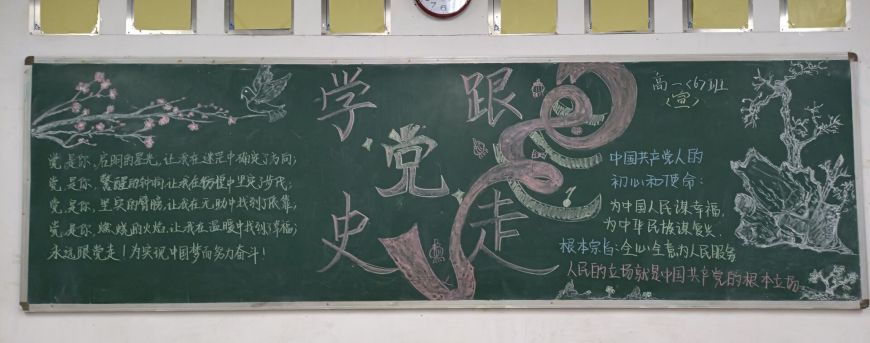 学党史
跟党走
党,是你,启明的星光,让我在迷茫中确定了方向;
党,是你,警醒的钟响,让我在彷徨中坚定了步伐;
党,是你,坚实的臂膀,让我在无助中找到了依靠;
党,是你,燃烧的火焰,让我在温暖中找到了幸福;
永远跟党走!为实现中国梦而努力奋斗!
高一<6>班
<宣>
中国共产党人的
初心和使命:
为中国人民谋幸福,
为中华民族谋复兴
根本宗旨:全心全意为人民服务
人民的立场就是中国共产党的根本立场